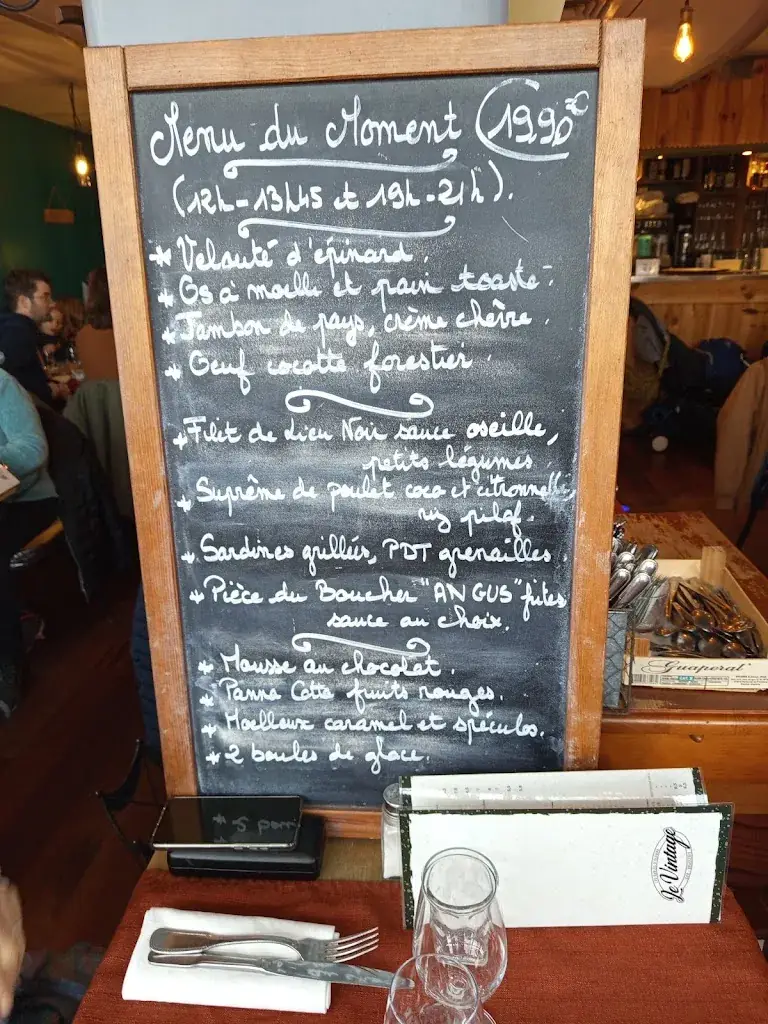 Menu du Moment 19.90€
(12h-13h45 et 19h-21h).
* Velouté d'épinard.
* Os à moelle et pain toasté.
* Jambon de pays, crème chèvre.
* Oeuf cocotte forestier.
* Filet de Lieu Noir sauce oseille,
petits légumes
* Suprême de poulet coco et citronnelle,
riz pilaf.
* Sardines grillées, PDT grenailles.
* Pièce du Boucher "ANGUS" frites
sauce au choix.
* Mousse au chocolat.
* Panna Cotta fruits rouges.
* Moelleux caramel et spéculos.
* 2 boules de glace.
Guaperal
Le Vintage